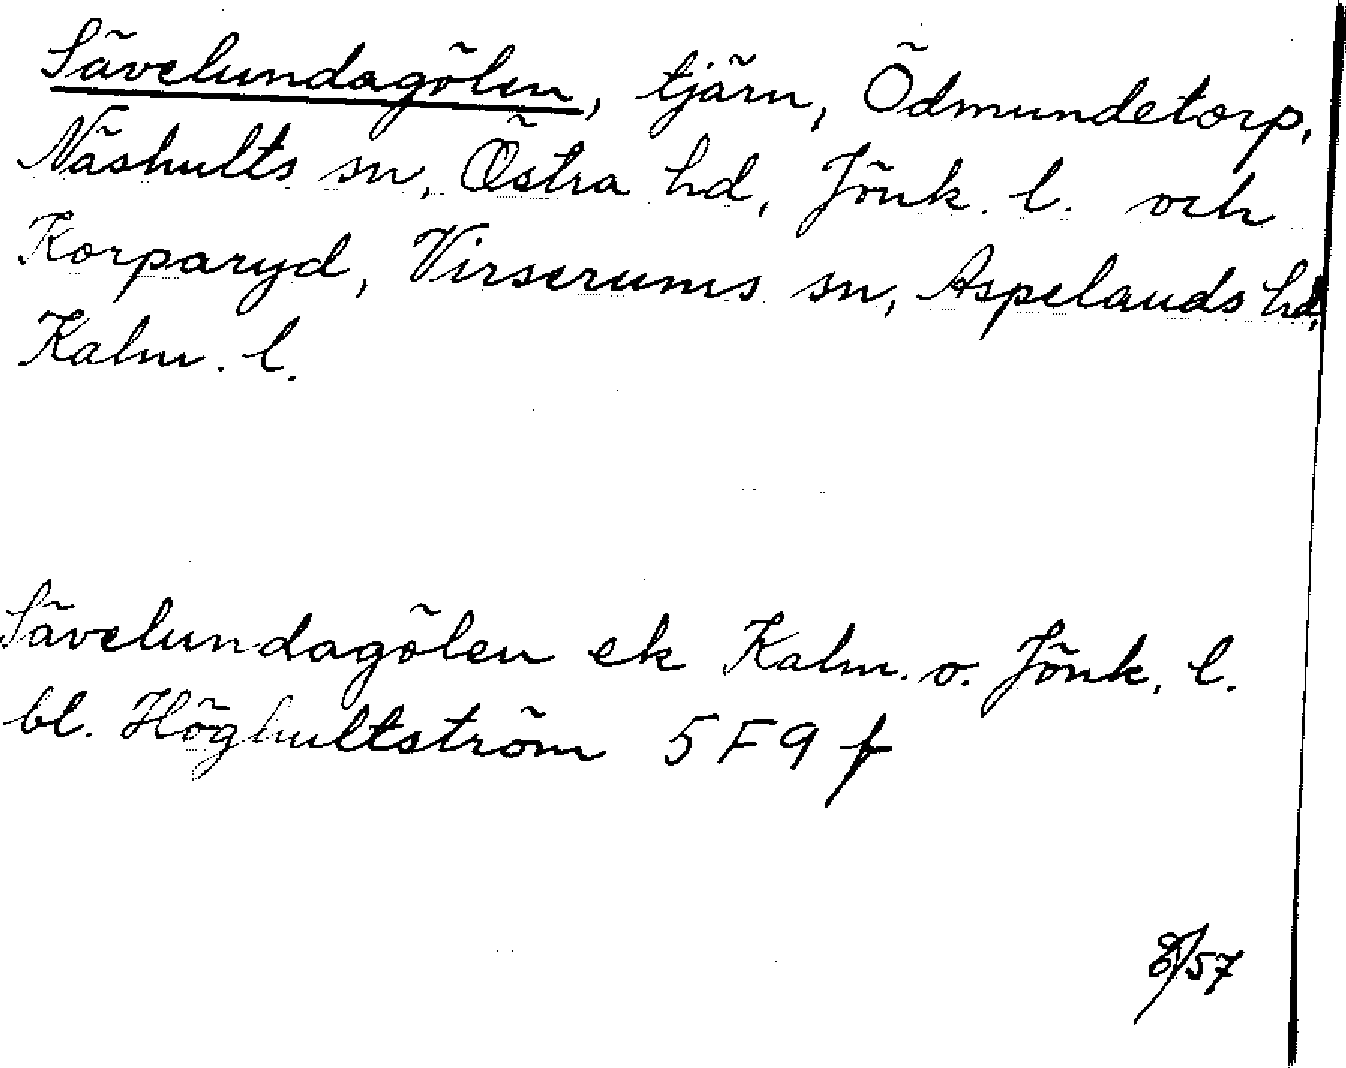 Sävelundagölen, tjärn, Ödmundetorp,
Näshults sn, Östra hd, Jönk. l. och
Korparyd, Virserums sn, Aspelands hd,
Kalm. l.
Sävelundagölen ek Kalm. o. Jönk. l.
bl. Höghultström 5F9f
8/57